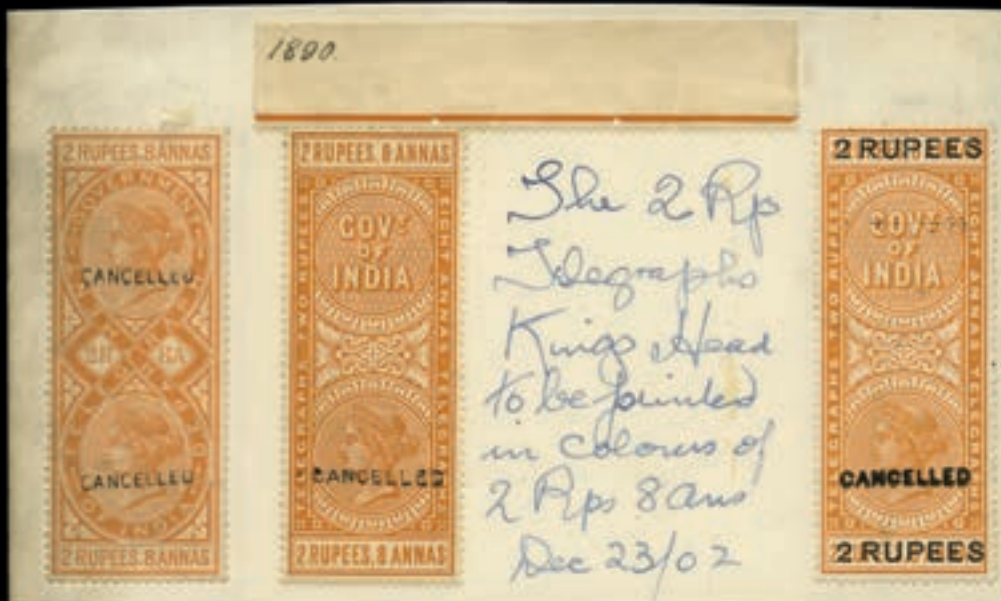 1890.
2 RUPEES. 8 ANNAS
GOVERNMENT
CANCELLED
CANCELLED
OF INDIA
2 RUPEES. 8 ANNAS
2 RUPEES. 8 ANNAS
GOVT
OF
INDIA
TELEGRAPH TWO RUPEES
EIGHT ANNAS TELEGRAPH
CANCELLED
2 RUPEES. 8 ANNAS
The 2 Rps
Telegraphs
Kings Head
to be printed
in colours of
2 Rps 8 ans
Dec 23/02
2 RUPEES
GOVT
OF
INDIA
TELEGRAPH TWO RUPEES
EIGHT ANNAS TELEGRAPH
CANCELLED
2 RUPEES